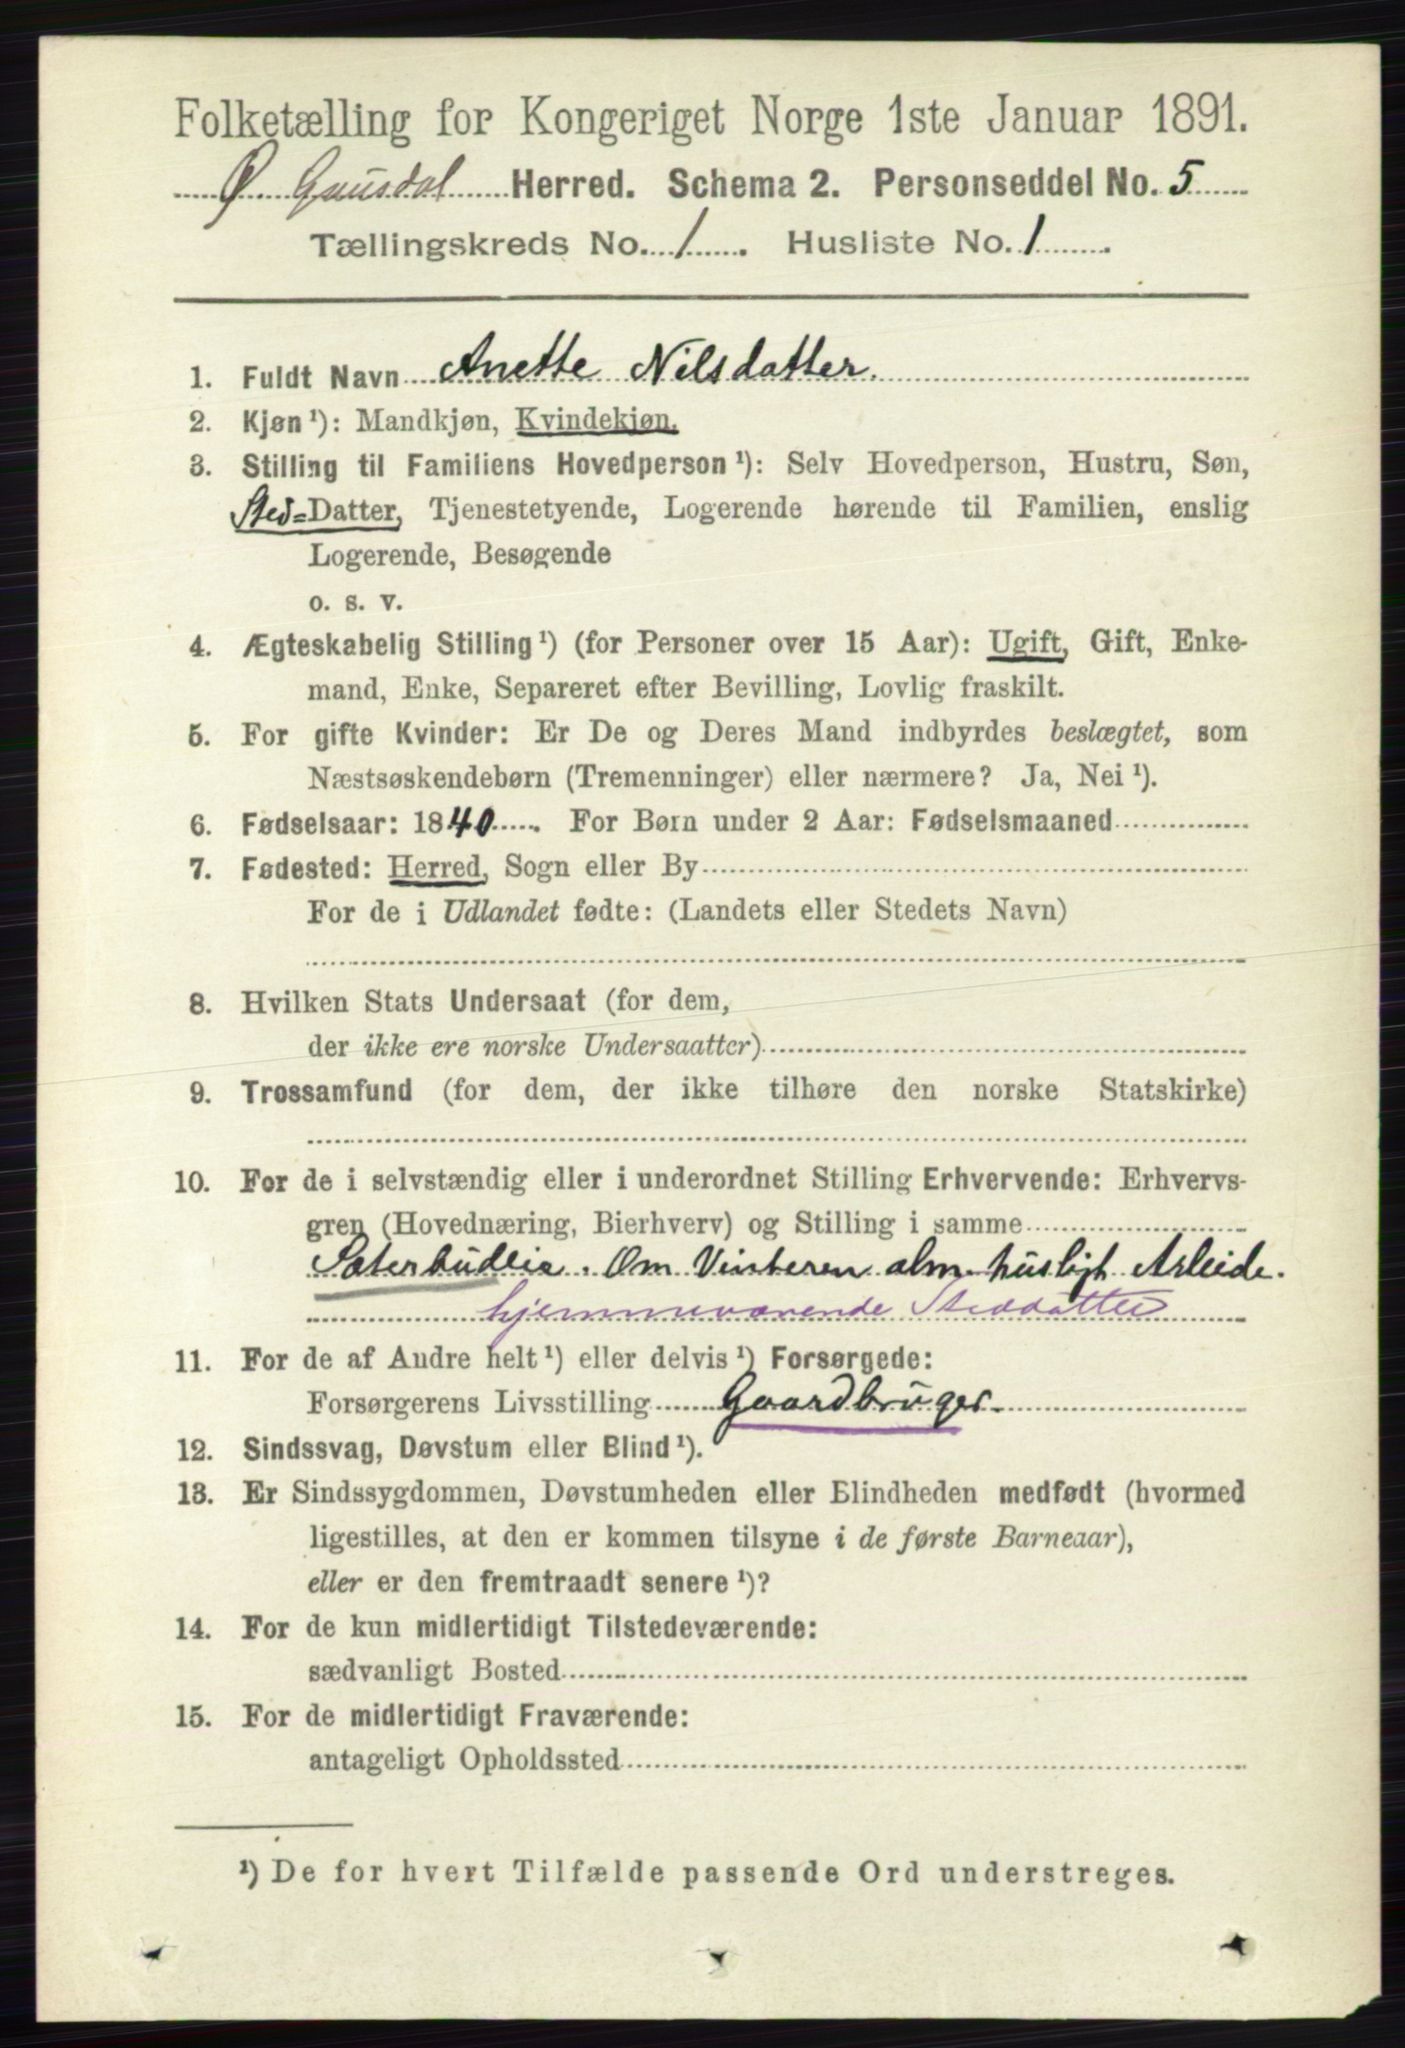 Folketælling for Kongeriget Norge 1ste Januar 1891.
Ø. Gausdal Herred. Schema 2. Personseddel No. 5
Tællingskreds No. 1. Husliste No. 1.
1. Fuldt Navn Anette Nilsdatter.
2. Kjøn¹): Mandkjøn, Kvindekjøn.
3. Stilling til Familiens Hovedperson¹): Selv Hovedperson, Hustru, Søn,
Sted=Datter, Tjenestetyende, Logerende hørende til Familien, enslig
Logerende, Besøgende
o. s. v.
4. Ægteskabelig Stilling¹) (for Personer over 15 Aar): Ugift, Gift, Enke-
mand, Enke, Separeret efter Bevilling, Lovlig fraskilt.
5. For gifte Kvinder: Er De og Deres Mand indbyrdes beslægtet, som
Næstsøskendebørn (Tremenninger) eller nærmere? Ja, Nei¹).
6. Fødselsaar: 1840. For Børn under 2 Aar: Fødselsmaaned
7. Fødested: Herred, Sogn eller By
For de i Udlandet fødte: (Landets eller Stedets Navn)
8. Hvilken Stats Undersaat (for dem,
der ikke ere norske Undersaatter)
9. Trossamfund (for dem, der ikke tilhøre den norske Statskirke)
10. For de i selvstændig eller i underordnet Stilling Erhvervende: Erhvervs-
gren (Hovednæring, Bierhverv) og Stilling i samme
Sæterbudeia. Om Vinteren alm. husligt Arbeide.
hjemmeværende Steddatter
11. For de af Andre helt¹) eller delvis¹) Forsørgede:
Forsørgerens Livsstilling Gaardbruger.
12. Sindssvag, Døvstum eller Blind¹).
13. Er Sindssygdommen, Døvstumheden eller Blindheden medfødt (hvormed
ligestilles, at den er kommen tilsyne i de første Barneaar),
eller er den fremtraadt senere¹)?
14. For de kun midlertidigt Tilstedeværende:
sædvanligt Bosted
15. For de midlertidigt Fraværende:
antageligt Opholdssted
¹) De for hvert Tilfælde passende Ord understreges.